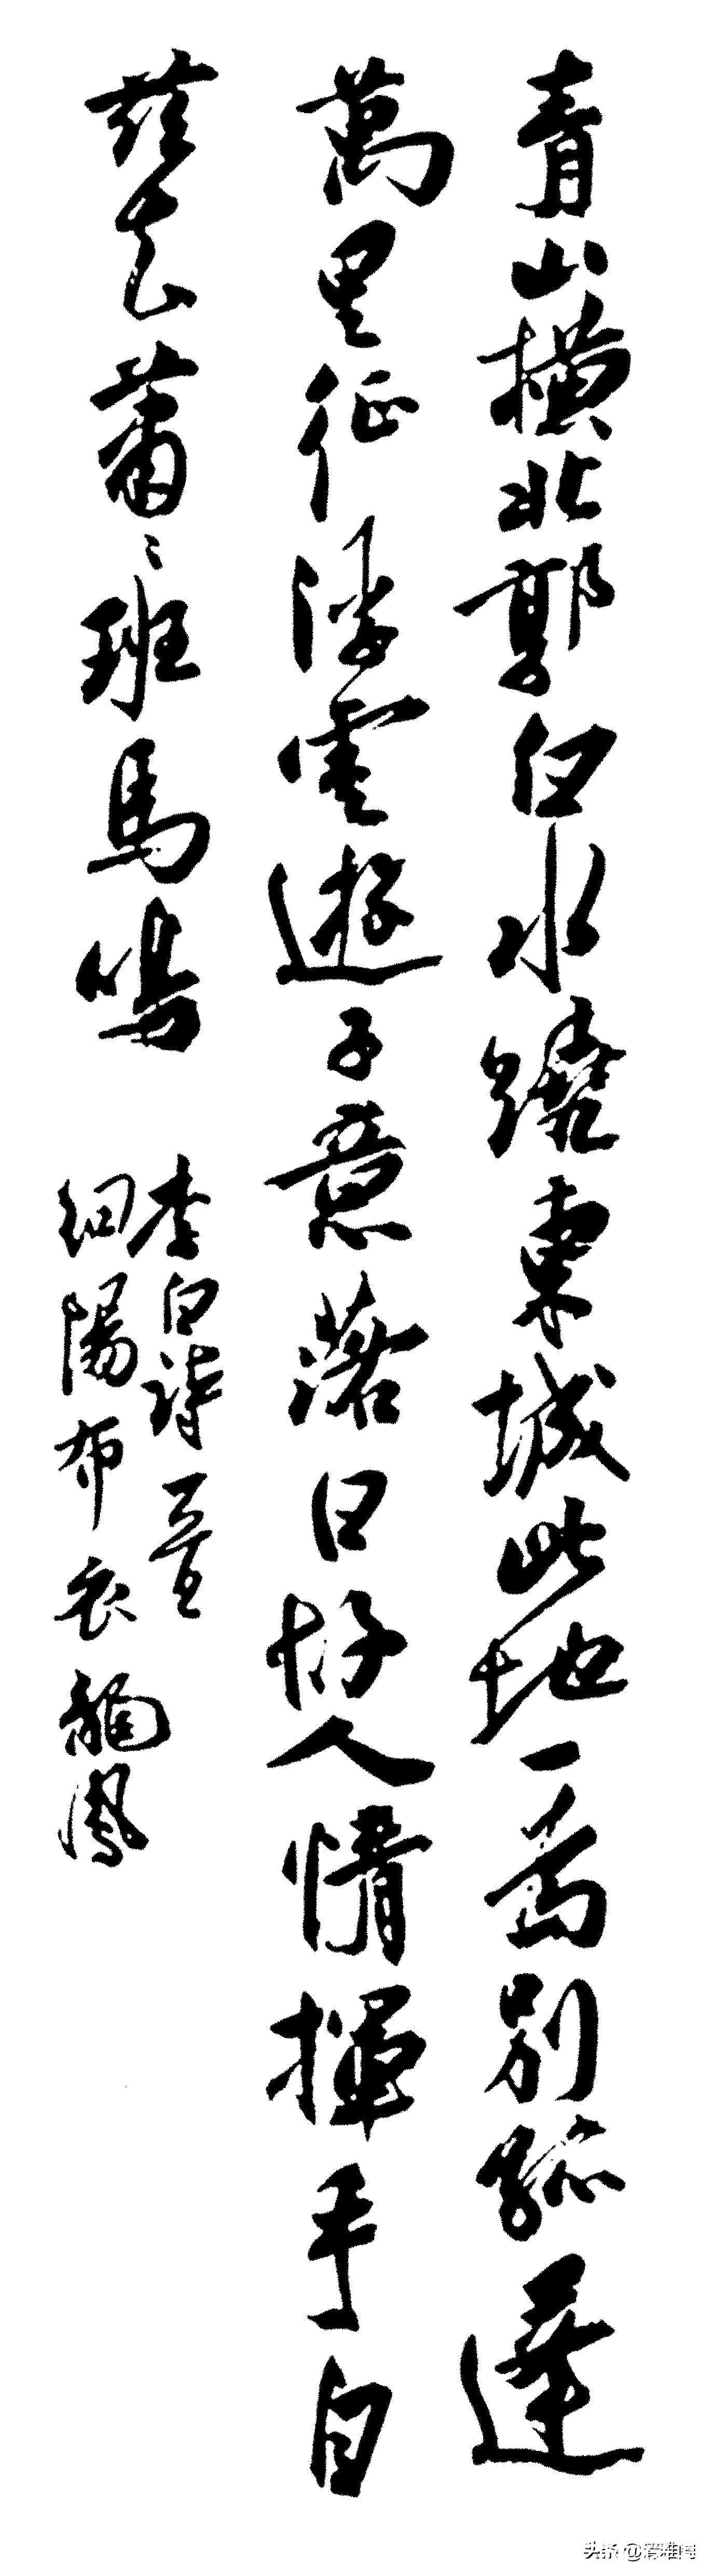 青山橫北郭白水繞東城此地一為別孤
萬里征浮雲遊子意落日人情揮手自
茲去蕭〻班馬鳴
李白詩
細陽布衣鳳
头条@爱推哥